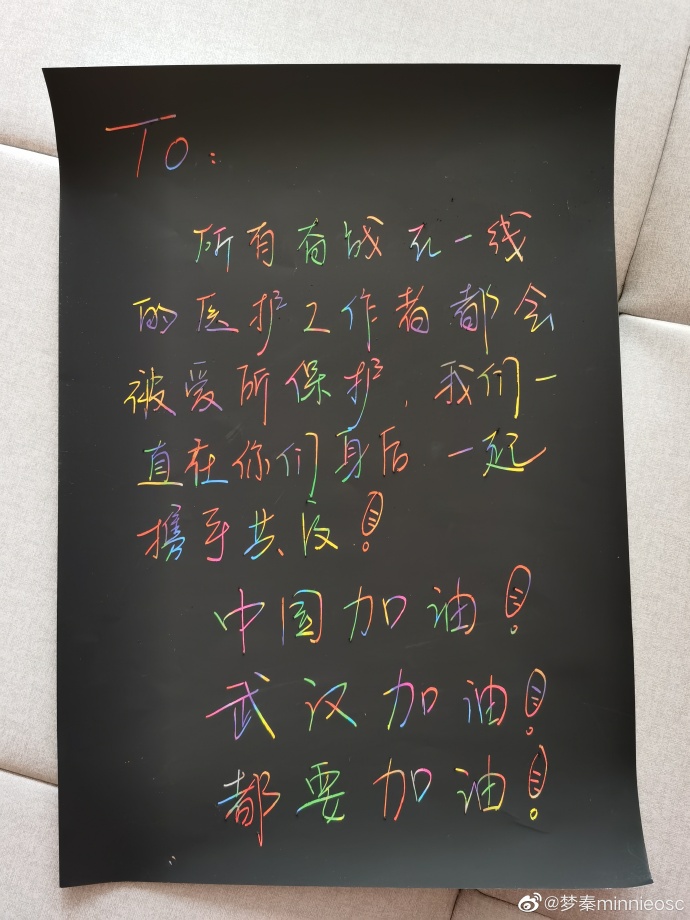 To:
所有奋战在一线
的医护工作者都会
被爱所保护,我们一
直在你们身后 一起
携手共度!
中国加油!
武汉加油!
都要加油!
@梦秦minnieosc